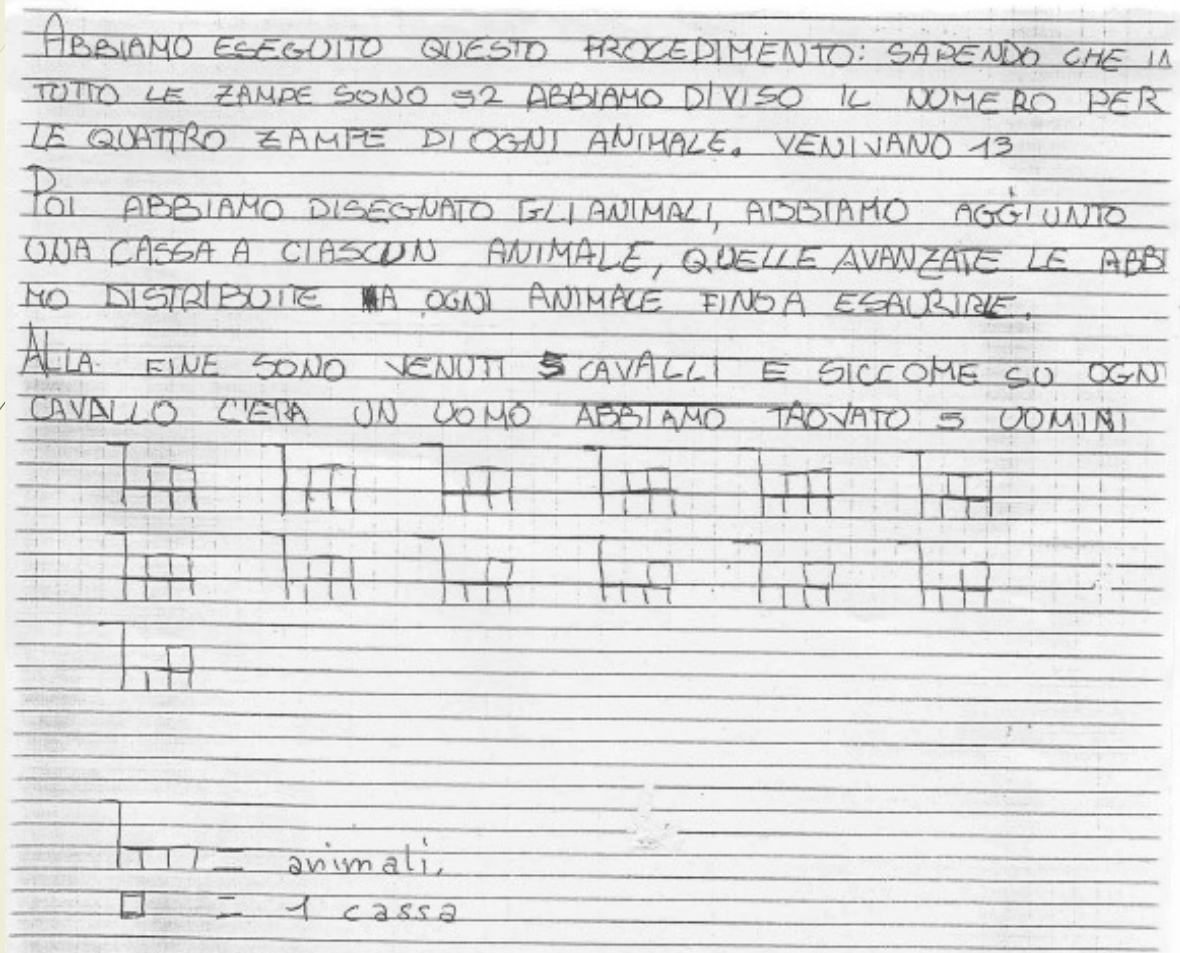 ABBIAMO ESEGUITO QUESTO PROCEDIMENTO: SAPENDO CHE IN
TUTTO LE ZAMPE SONO 52 ABBIAMO DIVISO IL NUMERO PER
LE QUATTRO ZAMPE DI OGNI ANIMALE. VENIVANO 13
POI ABBIAMO DISEGNATO GLI ANIMALI, ABBIAMO AGGIUNTO
UNA CASSA A CIASCUN ANIMALE, QUELLE AVANZATE LE ABBI
MO DISTRIBUITE A OGNI ANIMALE FINO A ESAURIRLE.
ALLA FINE SONO VENUTI 5 CAVALLI E SICCOME SU OGNI
CAVALLO C'ERA UN UOMO ABBIAMO TROVATO 5 UOMINI
= animali.
= 1 cassa